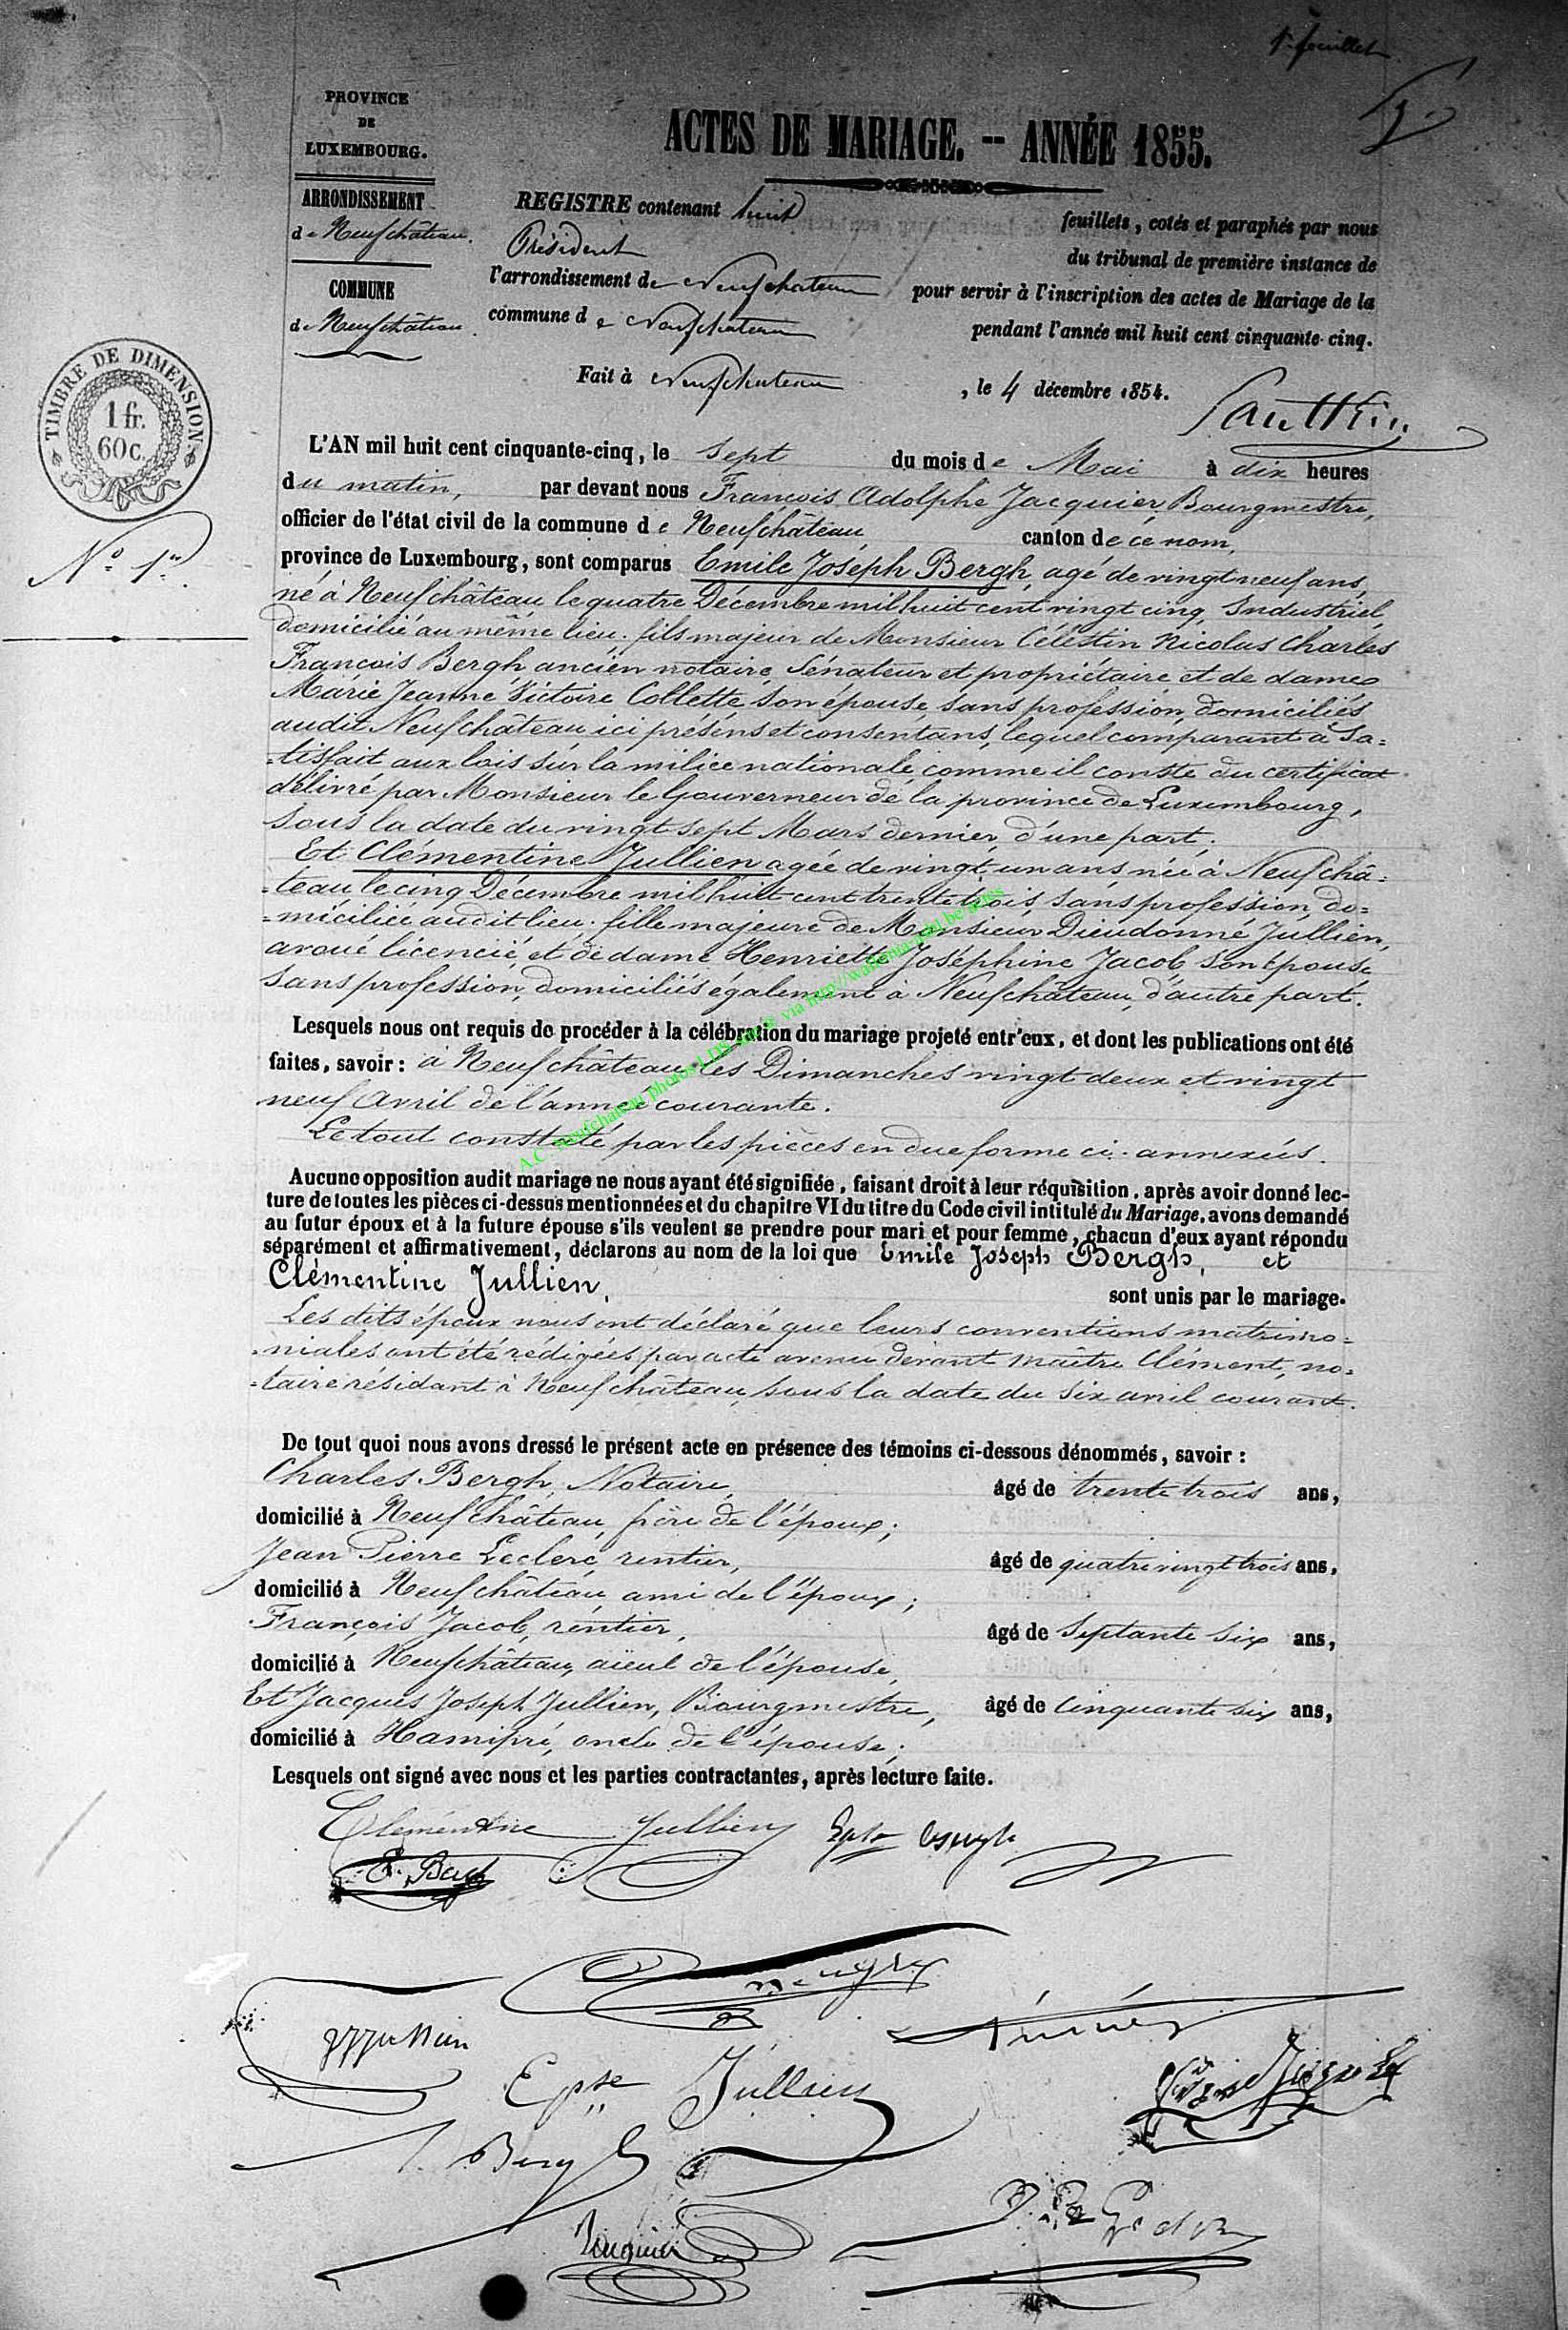 1r feuillet
PROVINCE
DE
LUXEMBOURG.
ARRONDISSEMENT
de Neufchâteau.
COMMUNE
de Neufchâteau.
TIMBRE DE DIMENSION.
1 fr.
60 c.
N° 1er
ACTES DE MARIAGE. -- ANNÉE 1855.
REGISTRE contenant huit feuillets, cotés et paraphés par nous
Président du tribunal de première instance de
l'arrondissement de Neufchateau pour servir à l'inscription des actes de Mariage de la
commune de Neufchateau pendant l'année mil huit cent cinquante-cinq.
Fait à Neufchateau, le 4 décembre 1854.
L'AN mil huit cent cinquante-cinq, le sept du mois de Mai à dix heures
du matin, par devant nous François Adolphe Jacquier, Bourgmestre,
officier de l'état civil de la commune de Neufchâteau, canton de ce nom,
province de Luxembourg, sont comparus Emile Joseph Bergh, agé de vingt neuf ans,
né à Neufchâteau le quatre Décembre mil huit cent vingt cinq, Industriel,
domicilié au même lieu. fils majeur de Monsieur Célestin Nicolas Charles
François Bergh ancien notaire, Sénateur et propriétaire, et de dame
Marie Jeanne Victoire Collette son épouse, sans profession, domiciliés
audit Neufchâteau, ici présens et consentans, lequel comparant a sa=
=tisfait aux lois sur la milice nationale, comme il conste du certificat
délivré par Monsieur le Gouverneur de la province de Luxembourg,
sous la date du vingt sept Mars dernier, d'une part.
Et Clémentine Jullien agée de vingt un ans, née à Neufchâ=
=teau, le cinq Décembre mil huit cent trente trois, sans profession, do=
=miciliée audit lieu. fille majeure de Monsieur Dieudonné Jullien,
avoué licencié, et de dame Henriette Joséphine Jacob son épouse,
sans profession, domiciliés également à Neufchâteau, d'autre part.
Lesquels nous ont requis de procéder à la célébration du mariage projeté entr'eux, et dont les publications ont été
faites, savoir: à Neufchâteau les Dimanches vingt deux et vingt
neuf Avril de l'année courante.
Le tout constaté par les pièces en due forme ci-annexés.
Aucune opposition audit mariage ne nous ayant été signifiée, faisant droit à leur réquisition, après avoir donné lec-
ture de toutes les pièces ci-dessus mentionnées et du chapitre VI du titre du Code civil intitulé du Mariage, avons demandé
au futur époux et à la future épouse s'ils veulent se prendre pour mari et pour femme, chacun d'eux ayant répondu
séparément et affirmativement, déclarons au nom de la loi que Emile Joseph Bergh, et
Clémentine Jullien, sont unis par le mariage.
Les dits époux nous ont déclaré que leurs conventions matrimo=
=niales ont été rédigées par acte avenu devant maître Clément, no=
=taire résidant à Neufchâteau, sous la date du six avril courant.
De tout quoi nous avons dressé le présent acte en présence des témoins ci-dessous dénommés, savoir:
Charles Bergh, Notaire, âgé de trente trois ans,
domicilié à Neufchâteau, frère de l'époux;
Jean Pierre Leclerc, rentier, âgé de quatre vingt trois ans,
domicilié à Neufchâteau, ami de l'époux;
François Jacob, rentier, âgé de septante six ans,
domicilié à Neufchâteau, aïeul de l'épouse,
Et Jacques Joseph Jullien, Bourgmestre, âgé de cinquante six ans,
domicilié à Hamipré, oncle de l'épouse.
Lesquels ont signé avec nous et les parties contractantes, après lecture faite.
Clémentine Jullien
E. Bergh
Epse Jullien
Bergh
Jacquier